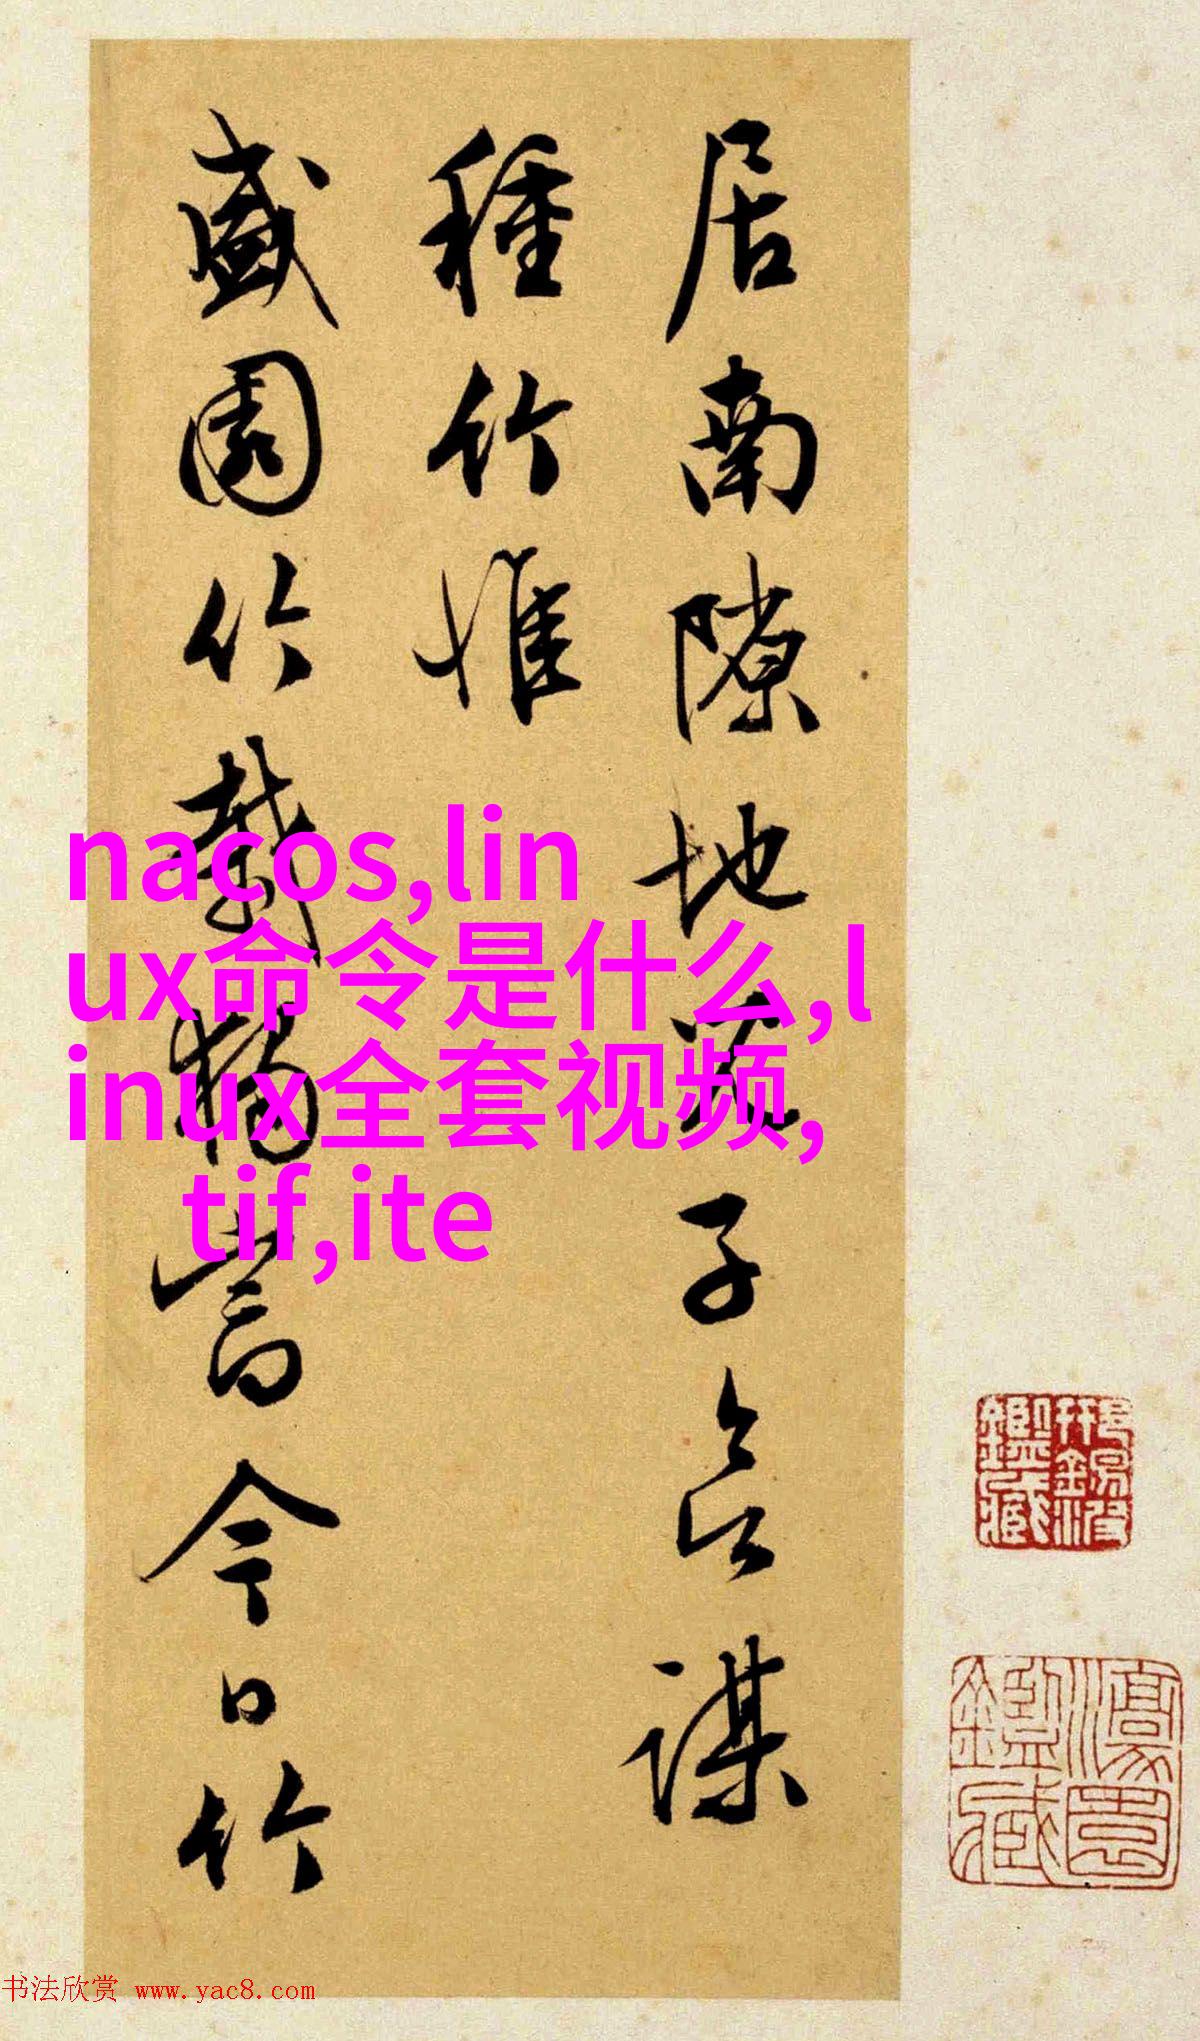 居南隙地子合謀
種竹惟
盛園竹今日竹
nacos,lin
ux命令是什么,l
inux全套视频,
tif,ite
鑑藏
鑑藏
书法欣赏 www.yac8.com